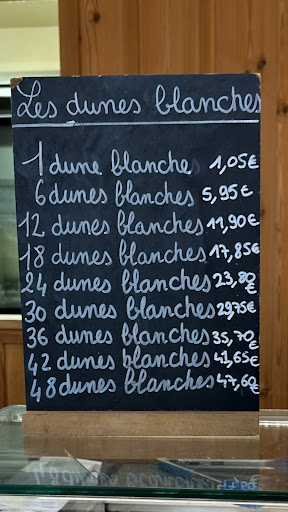 Les dunes blanches
1 dune blanche 1,05€
6 dunes blanches 5,95€
12 dunes blanches 11,90€
18 dunes blanches 17,85€
24 dunes blanches 23,80€
30 dunes blanches 29,75€
36 dunes blanches 35,70€
42 dunes blanches 41,65€
48 dunes blanches 47,60€